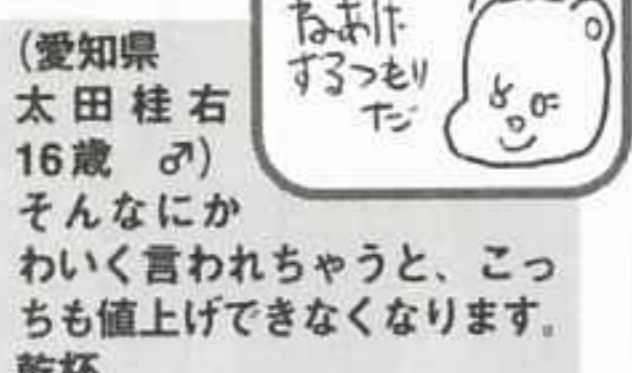 ねあげ
するつもり
だ
(愛知県
太田桂右
16歳 ♂)
そんなにか
わいく言われちゃうと、こっ
ちも値上げできなくなります。
乾杯